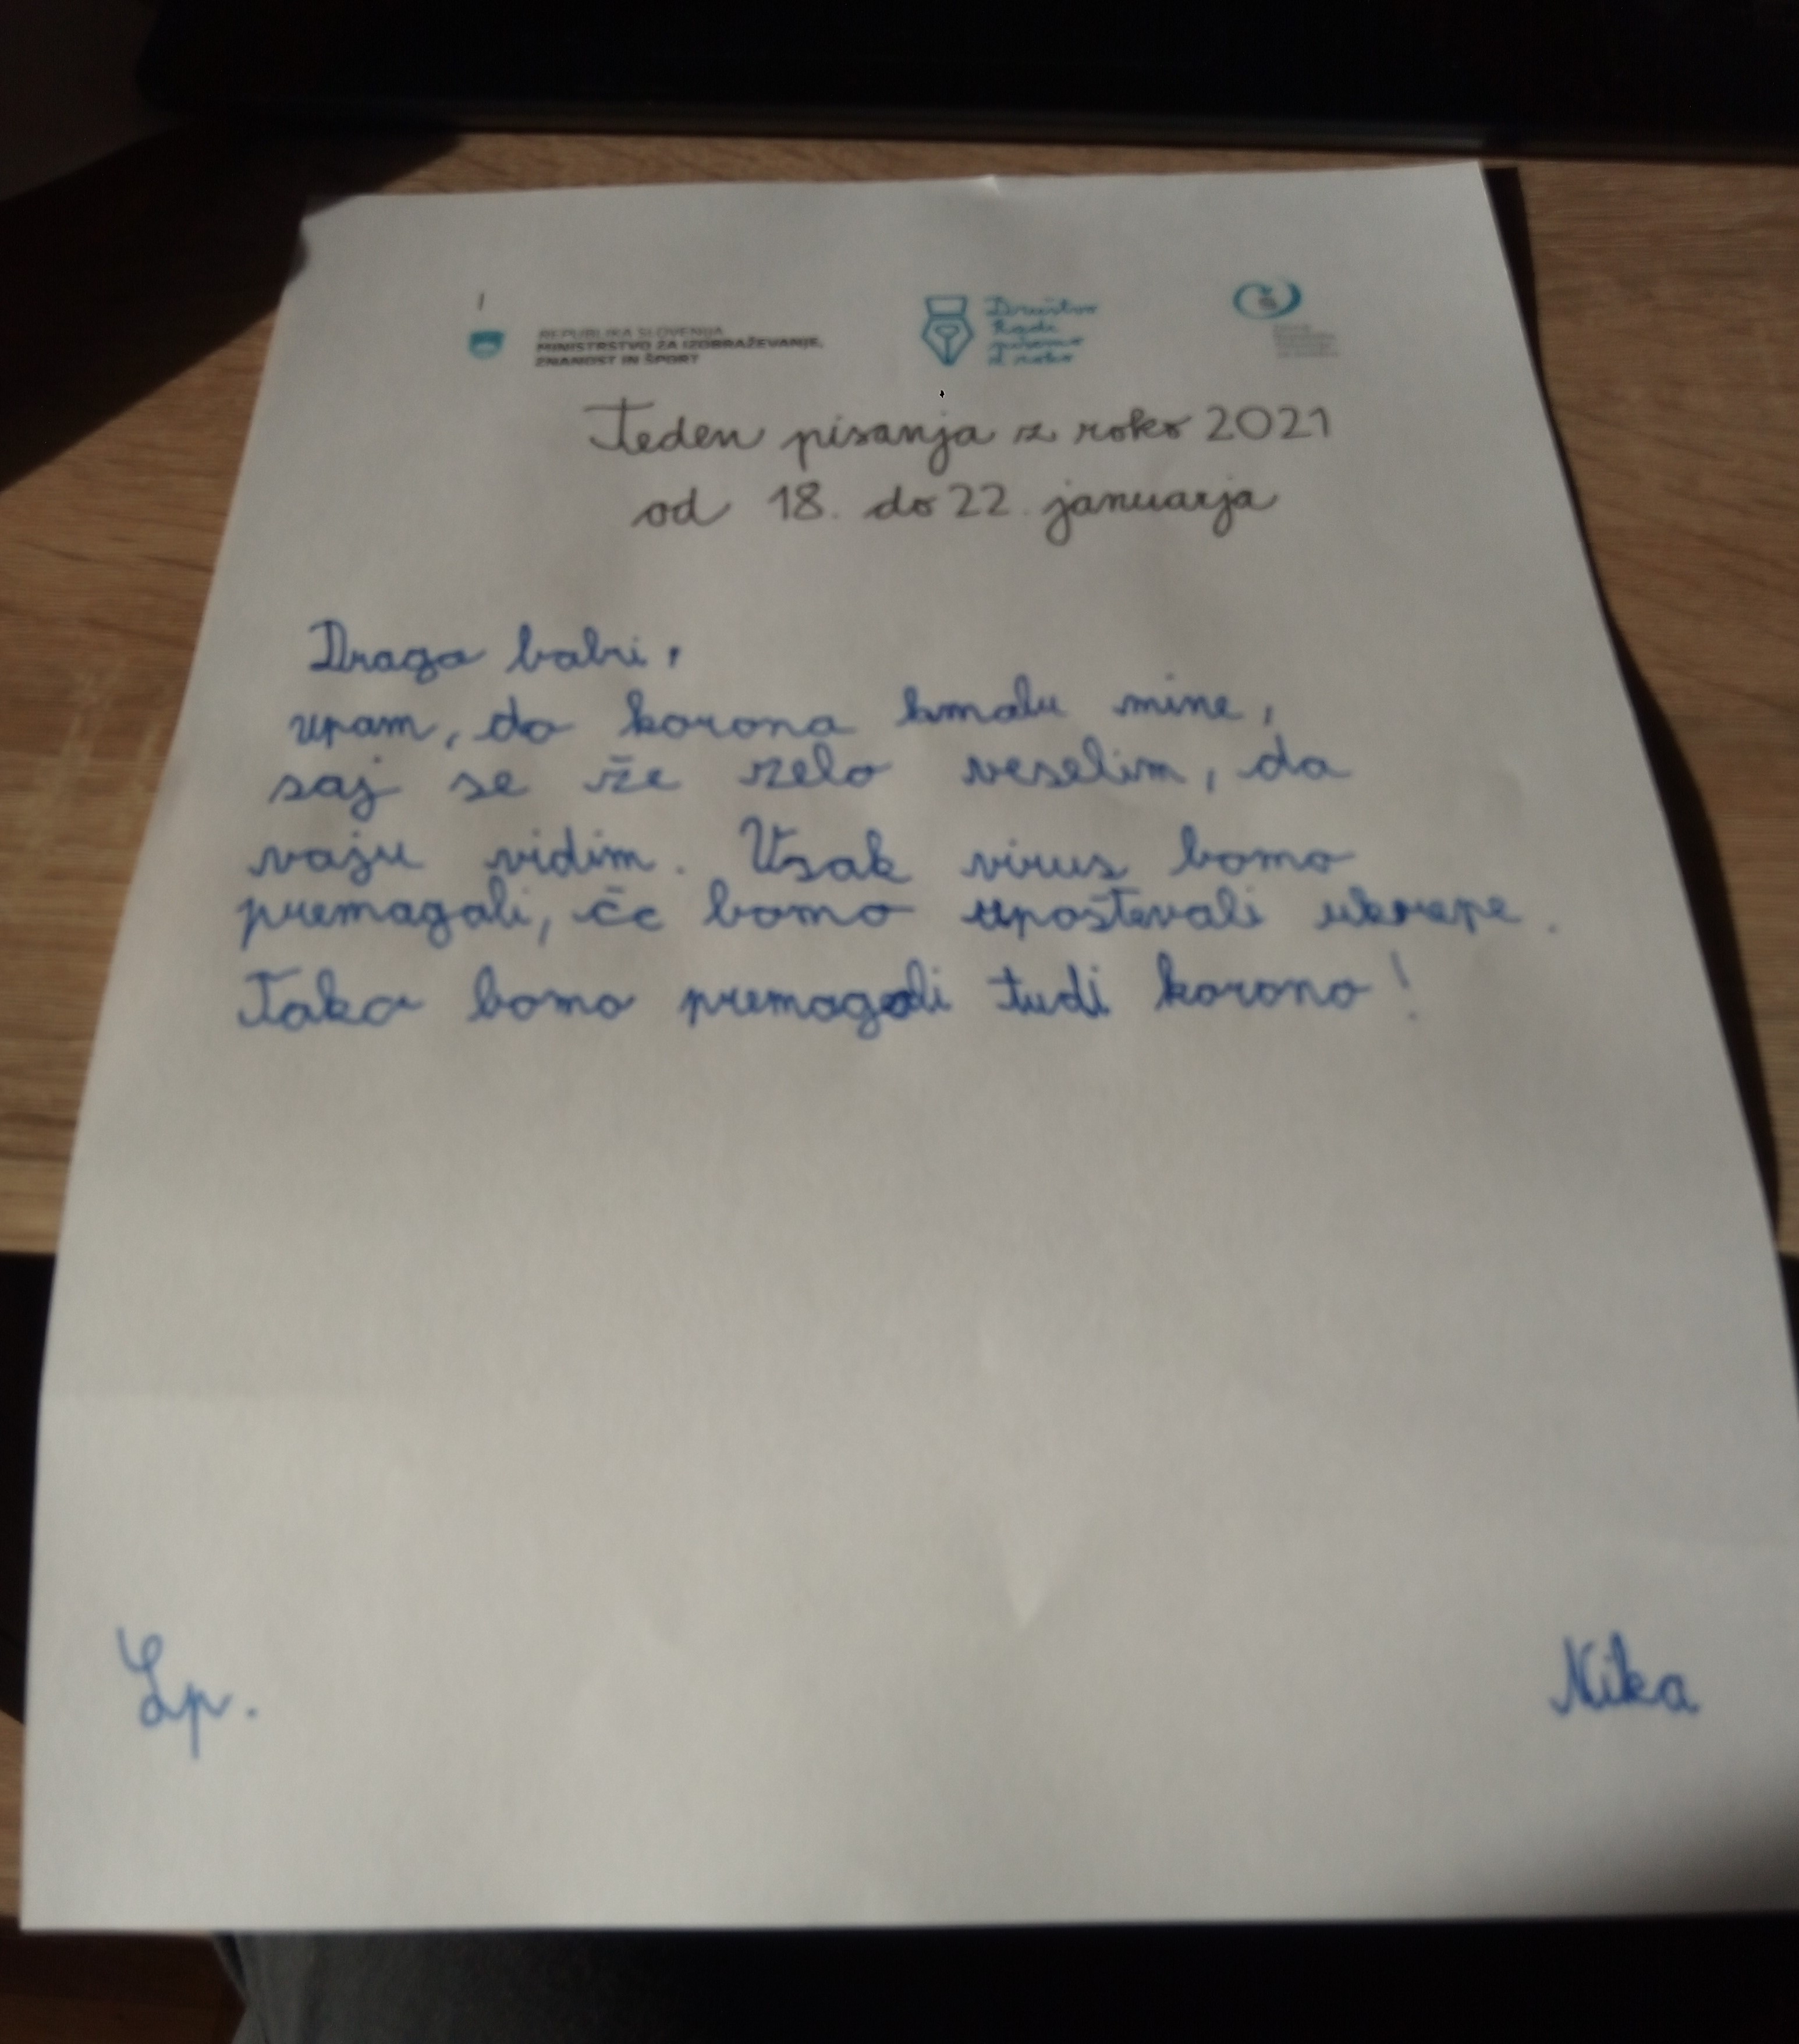 REPUBLIKA SLOVENIJA
MINISTRSTVO ZA IZOBRAŽEVANJE,
ZNANOST IN ŠPORT
Društvo
Radi
pišemo
z roko
Teden pisanja z roko 2021
od 18. do 22. januarja
Draga babi,
upam, da korona kmalu mine,
saj se že zelo veselim, da
vaju vidim. Vsak virus bomo
premagali, če bomo upoštevali ukrepe.
Tako bomo premagali tudi korono!
Lp.
Nika